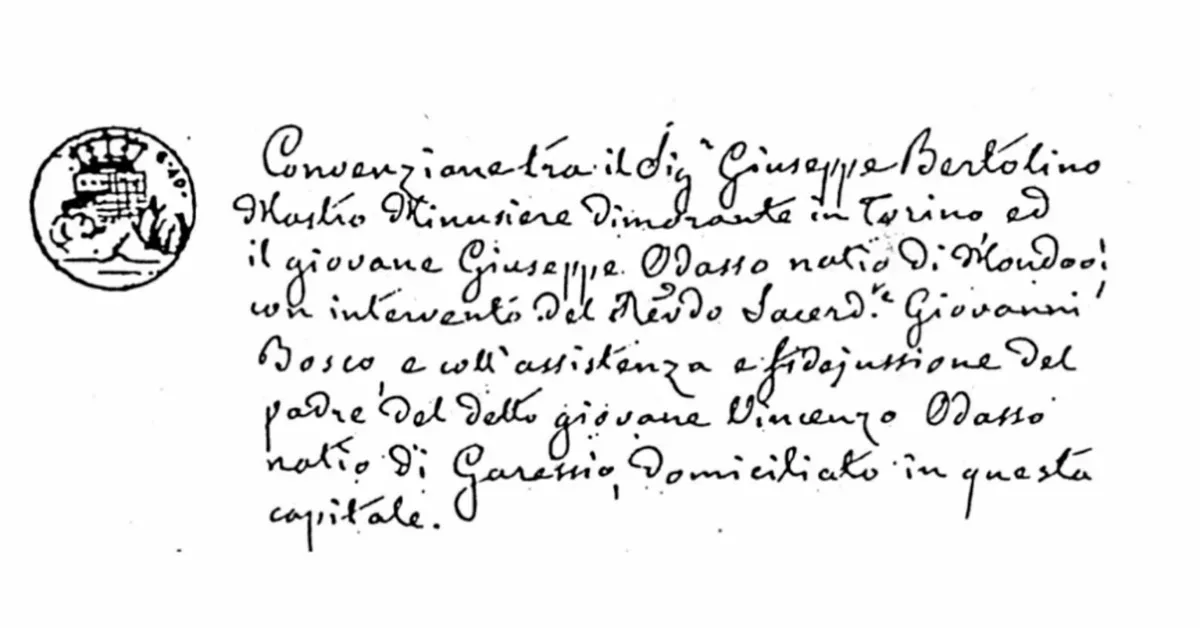 Convenzione tra il Sigr Giuseppe Bertolino
Mastro Minusiere dimorante in Torino ed
il giovane Giuseppe Odasso natio di Mondovì
con intervento del Revdo Sacerd.te Giovanni
Bosco, e coll'assistenza e fidejussione del
padre del detto giovane Vincenzo Odasso
natio di Garessio, domiciliato in questa
capitale.